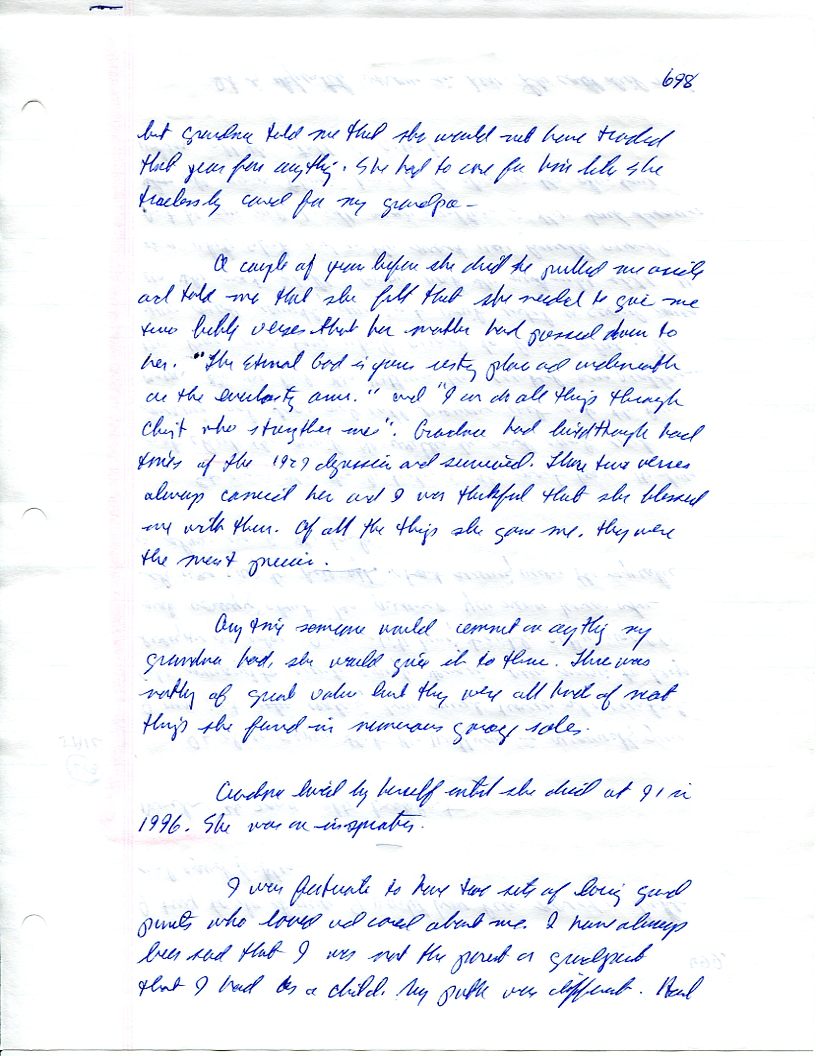 698
but grandma told me that she would not have traded
that year for anything. She had to care for him like she
tirelessly cared for my grandpa -
A couple of years before she died she pulled me aside
and told me that she felt that she needed to give me
two bible verses that her mother had passed down to
her. "The Eternal God is your resting place and underneath
are the everlasting arms." and "I can do all things through
Christ who strengthens me". Grandma had lived through hard
times of the 1929 depression and survived. These two verses
always carried her and I was thankful that she blessed
me with them. Of all the things she gave me, they were
the most precious.
Any time someone would comment on anything my
grandma had, she would give it to them. There was
nothing of great value but they were all kind of neat
things she found in numerous garage sales.
Grandma lived by herself until she died at 91 in
1996. She was an inspiration.
I was fortunate to have two sets of loving grand
parents who loved and cared about me. I have always
been sad that I was not the parent or grandparent
that I had as a child. My path was different. Hard